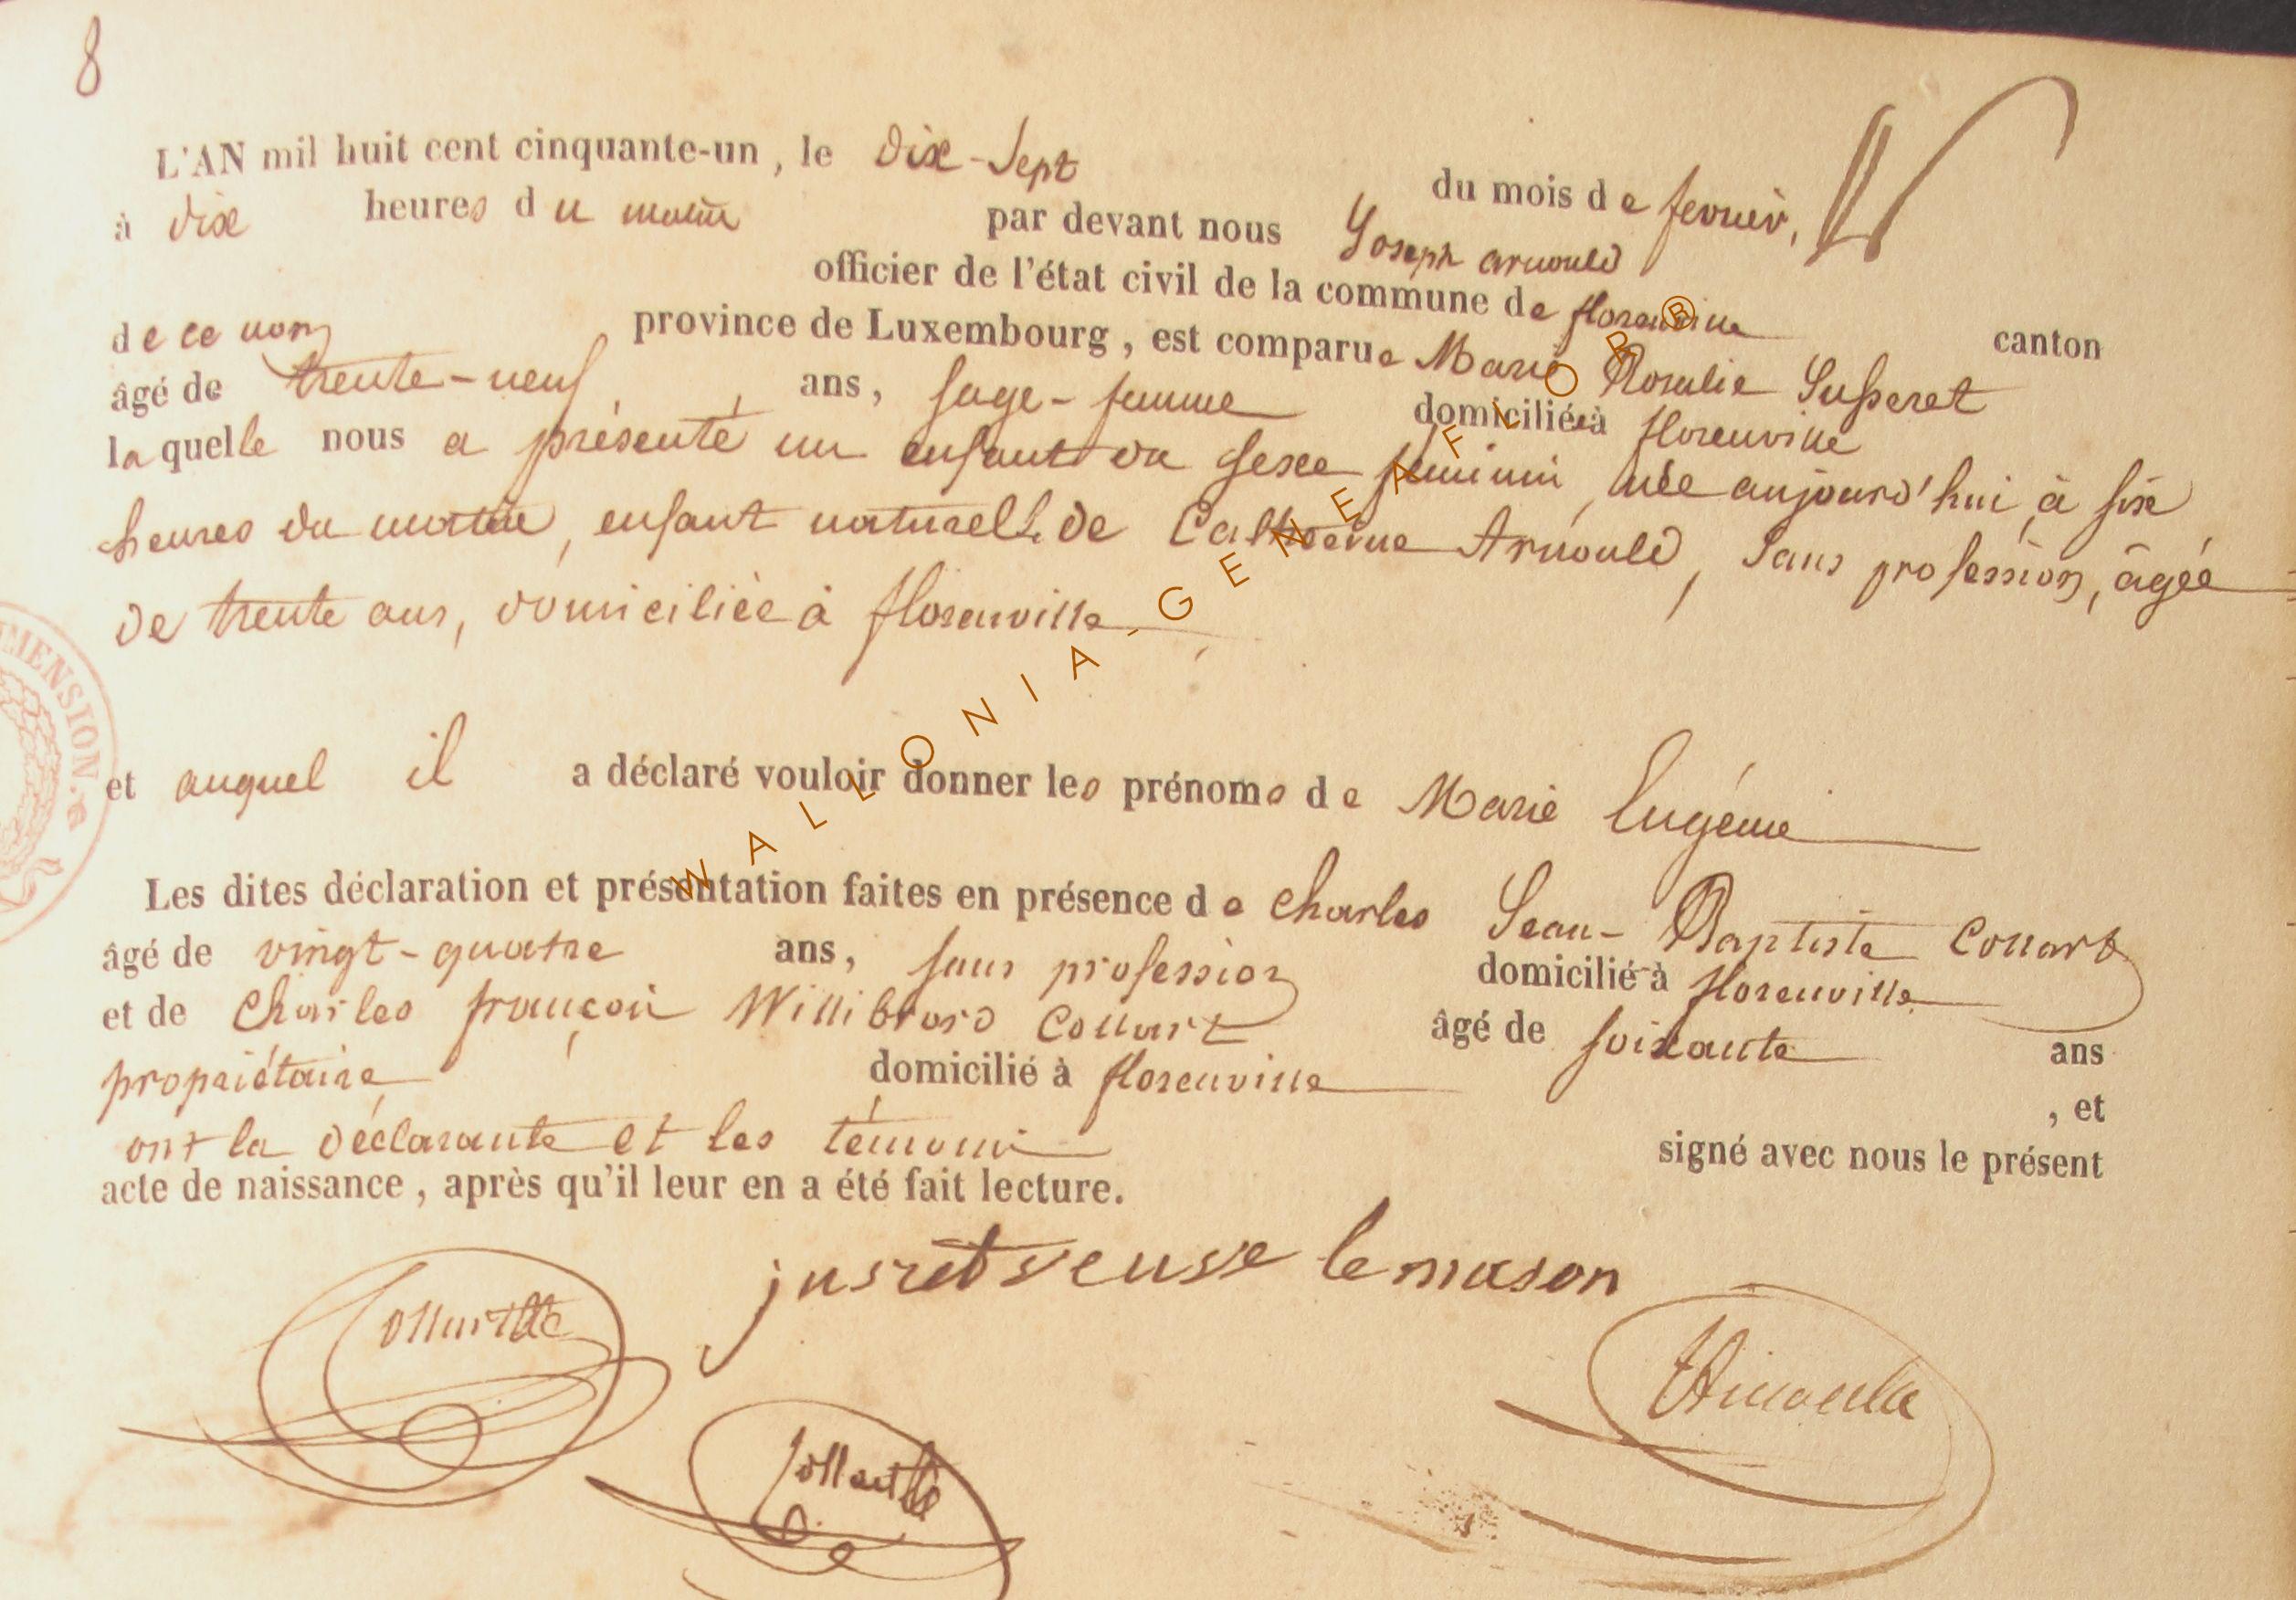 8
L'AN mil huit cent cinquante-un, le dix-sept du mois de fevrier,
à dix heures du matin par devant nous Joseph arnould
officier de l'état civil de la commune de florenville canton
de ce nom province de Luxembourg, est comparue Marie Rosalie Jusseret
âgé de trente-neuf ans, sage-femme domiciliée à florenville
laquelle nous a présenté un enfant du sexe feminin, née aujourd'hui, à six
heures du matin, enfant naturelle de Catherine Arnould, sans profession, âgée
de trente ans, domiciliée à florenville
et auquel il a déclaré vouloir donner les prénoms de Marie Eugénie
Les dites déclaration et présentation faites en présence de Charles Jean-Baptiste Collart
âgé de vingt-quatre ans, sans profession domicilié à florenville
et de Charles françois Willibrord Collart âgé de soixante ans
propriétaire domicilié à florenville, et
ont la déclarante et les témoins signé avec nous le présent
acte de naissance, après qu'il leur en a été fait lecture.
jusret veuve lemason
WALLONIA-GENEAFLORB®
MENSION.